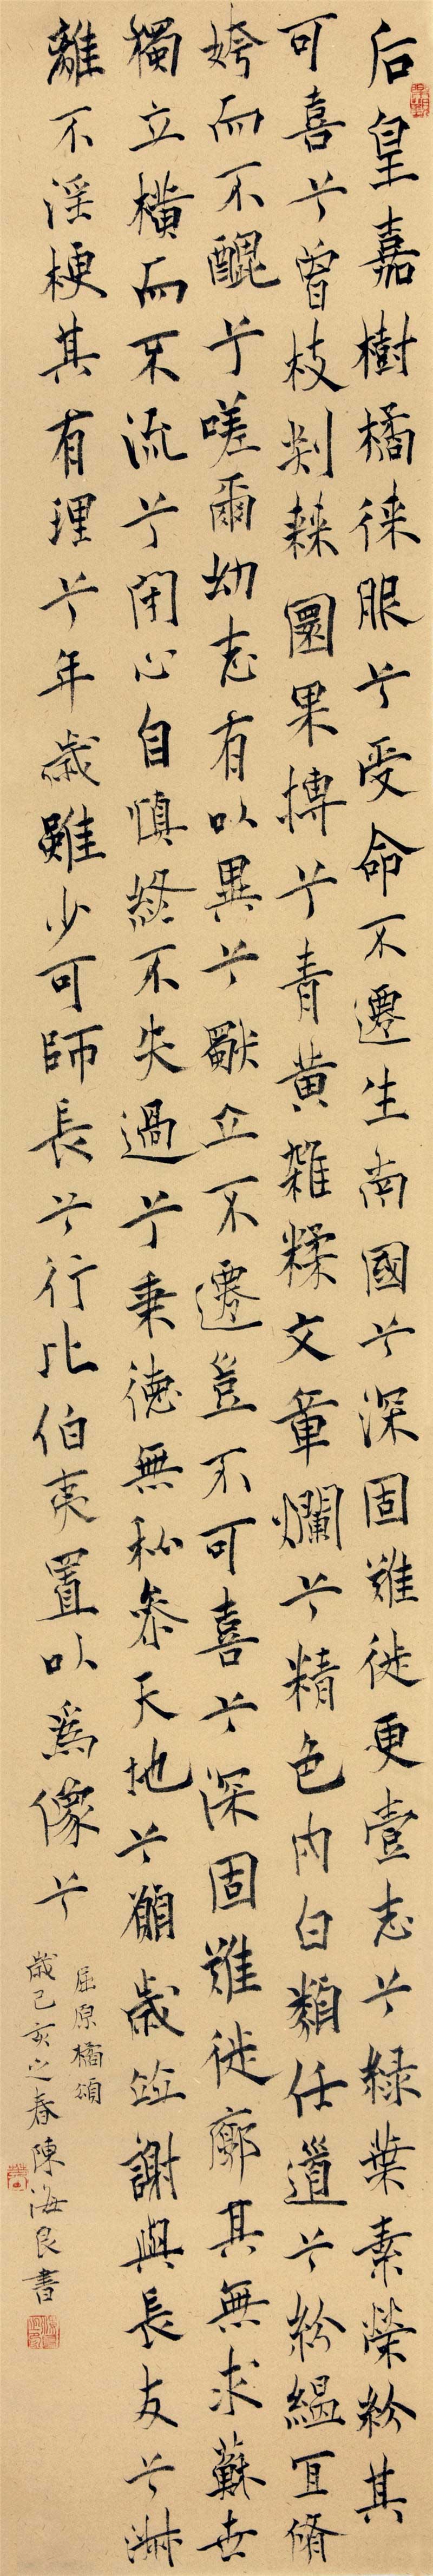 后皇嘉樹橘徠服兮受命不遷生南國兮深固難徙更壹志兮綠葉素榮紛其
可喜兮曾枝剡棘圜果摶兮青黃雜糅文章爛兮精色內白類任道兮紛縕宜脩
姱而不醜兮嗟爾幼志有以異兮獨立不遷豈不可喜兮深固難徙廓其無求蘇世
獨立橫而不流兮閉心自慎終不失過兮秉德無私參天地兮願歲竝謝與長友兮淑
離不淫梗其有理兮年歲雖少可師長兮行比伯夷置以為像兮
屈原橘頌
歲己亥之春陳海良書